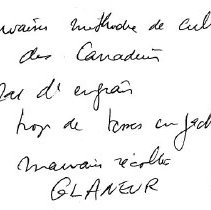 mauvaises methodes de cul
des Canadiens
Pas d'engrais
trop de terres en jach
mauvaise récolte
GLANEUR